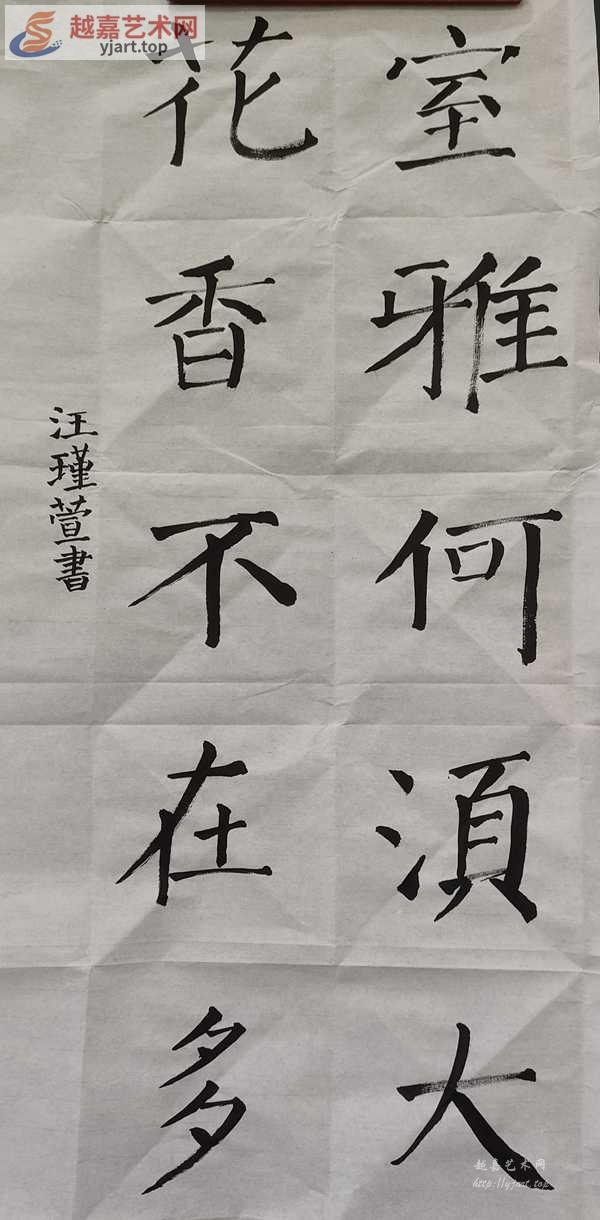 室雅何須大
花香不在多
汪瑾萱書
越嘉艺术网
yjart.top
越嘉艺术网
http://yjart.top